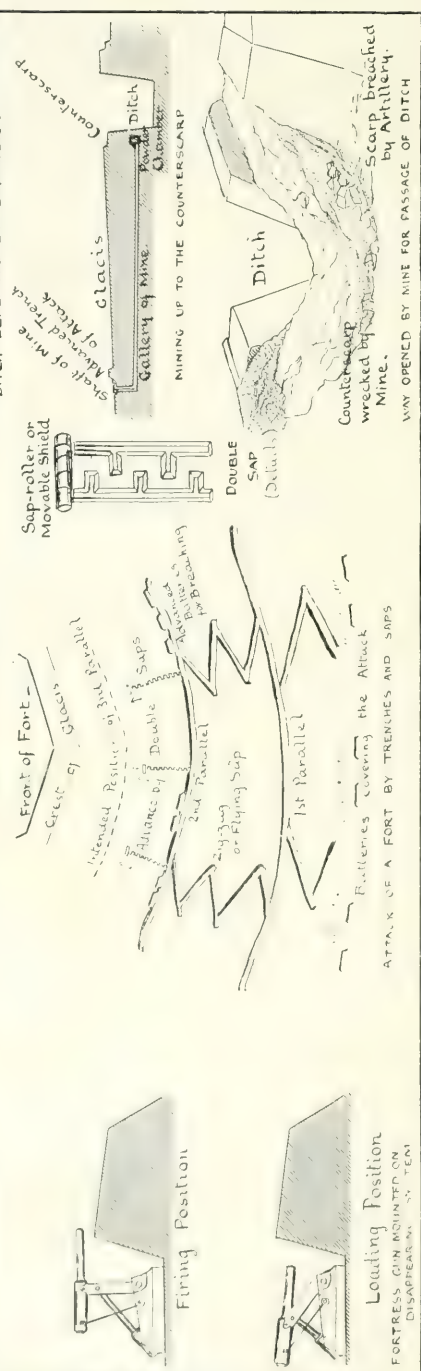 Firing Position
Loading Position
FORTRESS GUN MOUNTED ON
Front of Fort
Crest of Glacis
Intended Position of 3rd Parallel
Advance by Double Saps
2nd Parallel
Advanced
for Breaching
Zig-zag
or Flying Sap
1st Parallel
Batteries covering the Attack
ATTACK OF A FORT BY TRENCHES AND SAPS
Sap-roller or
Movable Shield
DOUBLE
SAP
(Details)
Counterscarp
Glacis
Shaft of Mine
Advanced Trench
of Attack
Gallery of Mine
Powder
Chamber
Ditch
MINING UP TO THE COUNTERSCARP
Ditch
Counterscarp
wrecked by
Mine.
Scarp breached
by Artillery.
WAY OPENED BY MINE FOR PASSAGE OF DITCH